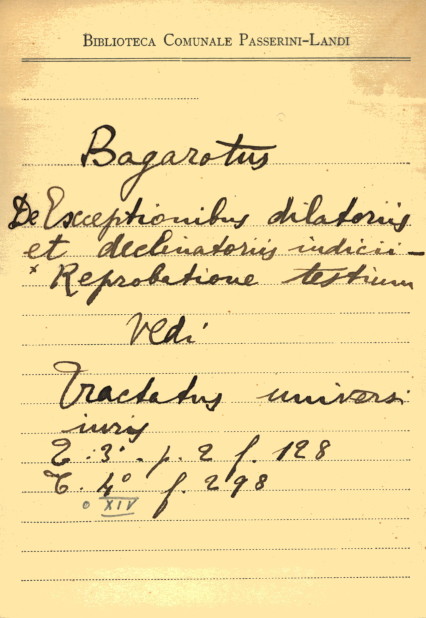 BIBLIOTECA COMUNALE PASSERINI-LANDI
Bagarotus
De Exceptionibus dilatoriis
et declinatoriis indicii -
x Reprobatione testium
Vedi
Tractatus universi
iuris
T. 3° . p. 2 f. 128
T. 4° f. 298
o XIV